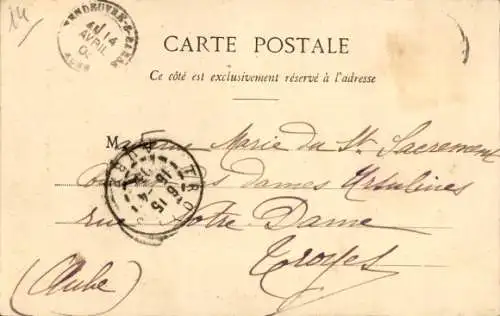 14
VENDEUVRE-S-BARSE
14
AVRIL
AUBE
CARTE POSTALE
Ce côté est exclusivement réservé à l'adresse
Madame Marie du St Sacrement
des dames Ursulines
rue Notre Dame
Troyes
(Aube)
TROYES
15
4
AUBE